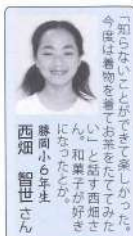 「知らないことができて楽しかった。
今度は着物を着てお茶をたててみた
い」と話す西畑さ
ん。和菓子が好き
になったとか。
勝岡小6年生
西畑 智世さん